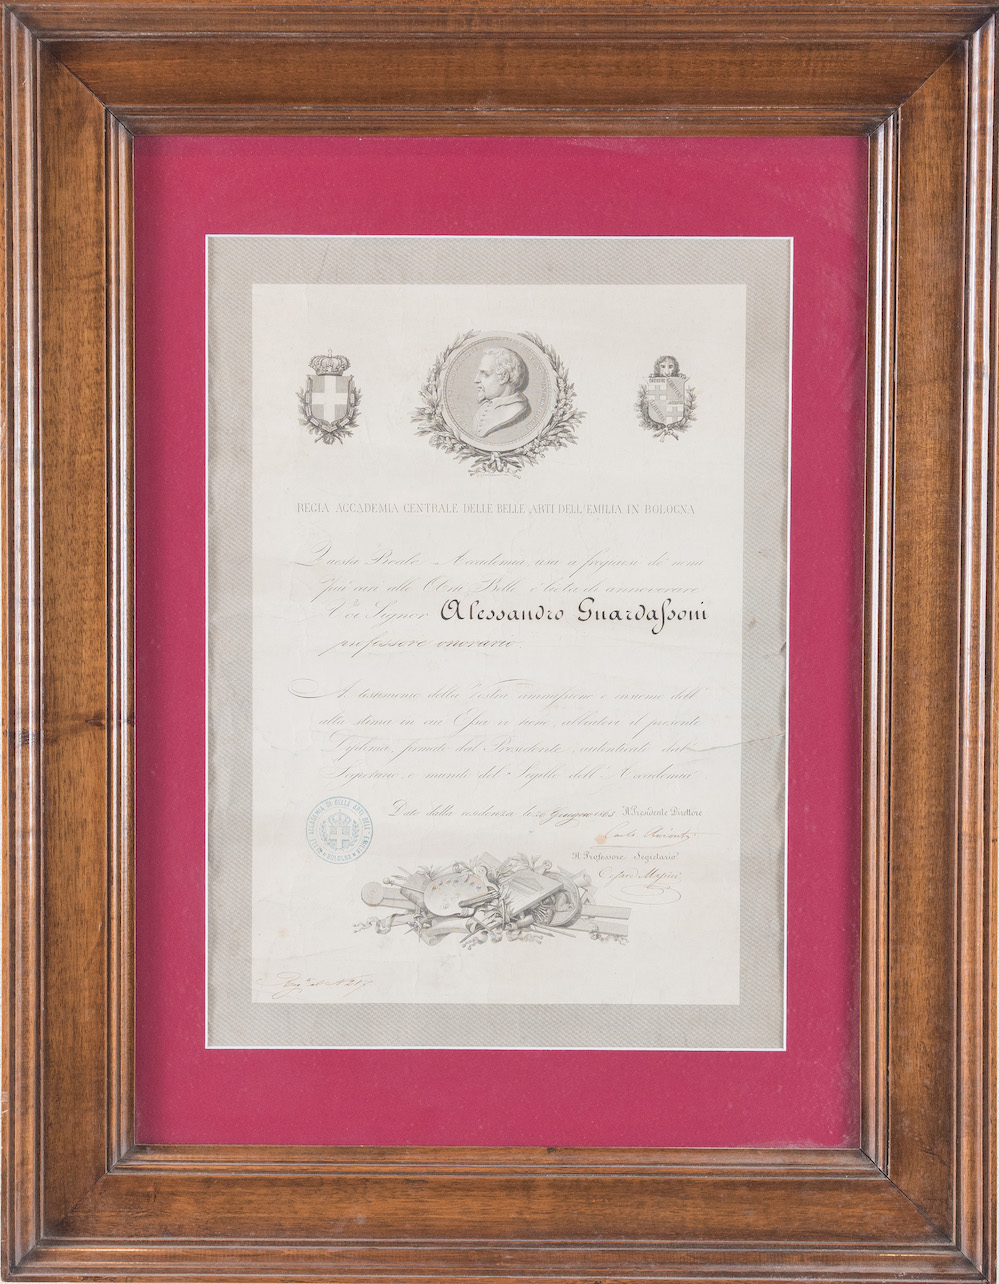 REGIA ACCADEMIA CENTRALE DELLE BELLE ARTI DELL'EMILIA IN BOLOGNA
Questa Reale Accademia, usa a fregiarsi de' nomi
più cari alle Arti Belle è lieta di annoverare
Voi Signor Alessandro Guardaſsoni
professore onorario.
A testimonio della Vostra ammiſsione e insieme dell'
alta stima in cui Eſsa vi tiene, abbiatevi il presente
Diploma, firmato dal Presidente, autenticato dal
Segretario, e munito del Sigillo dell'Accademia
Dato dalla residenza li 20 Giugno 1863 Il Presidente Direttore
Carlo
Il Professore Segretario
Cesare
ACCADEMIA DI BELLE ARTI DELL'EMILIA
BOLOGNA